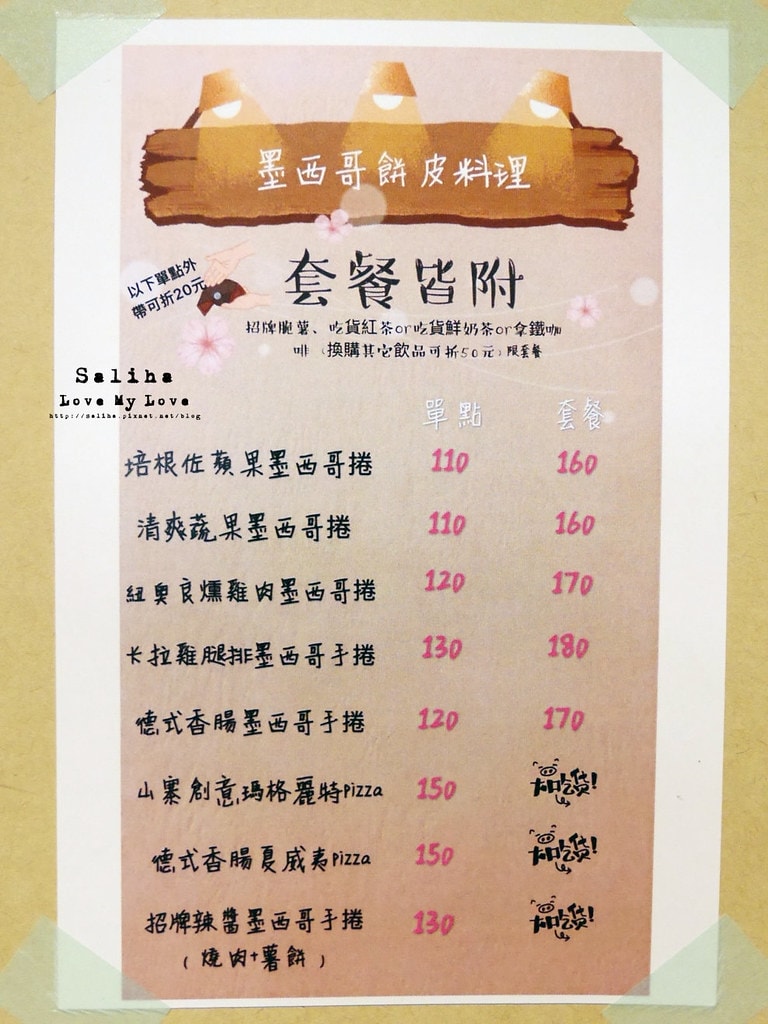 墨西哥餅皮料理
以下單點外
帶可折20元
套餐皆附
招牌脆薯、吃貨紅茶or吃貨鮮奶茶or拿鐵咖
啡(換購其它飲品可折50元)限套餐
Saliha
Love My Love
http://saliha.pixnet.net/blog
單點 套餐
培根佐蘋果墨西哥捲 110 160
清爽蔬果墨西哥捲 110 160
紐奧良燻雞肉墨西哥捲 120 170
卡拉雞腿排墨西哥手捲 130 180
德式香腸墨西哥手捲 120 170
山寨創意瑪格麗特pizza 150 大口吃货!
德式香腸夏威夷pizza 150 大口吃货!
招牌辣醬墨西哥手捲 130 大口吃货!
(燒肉+薯餅)